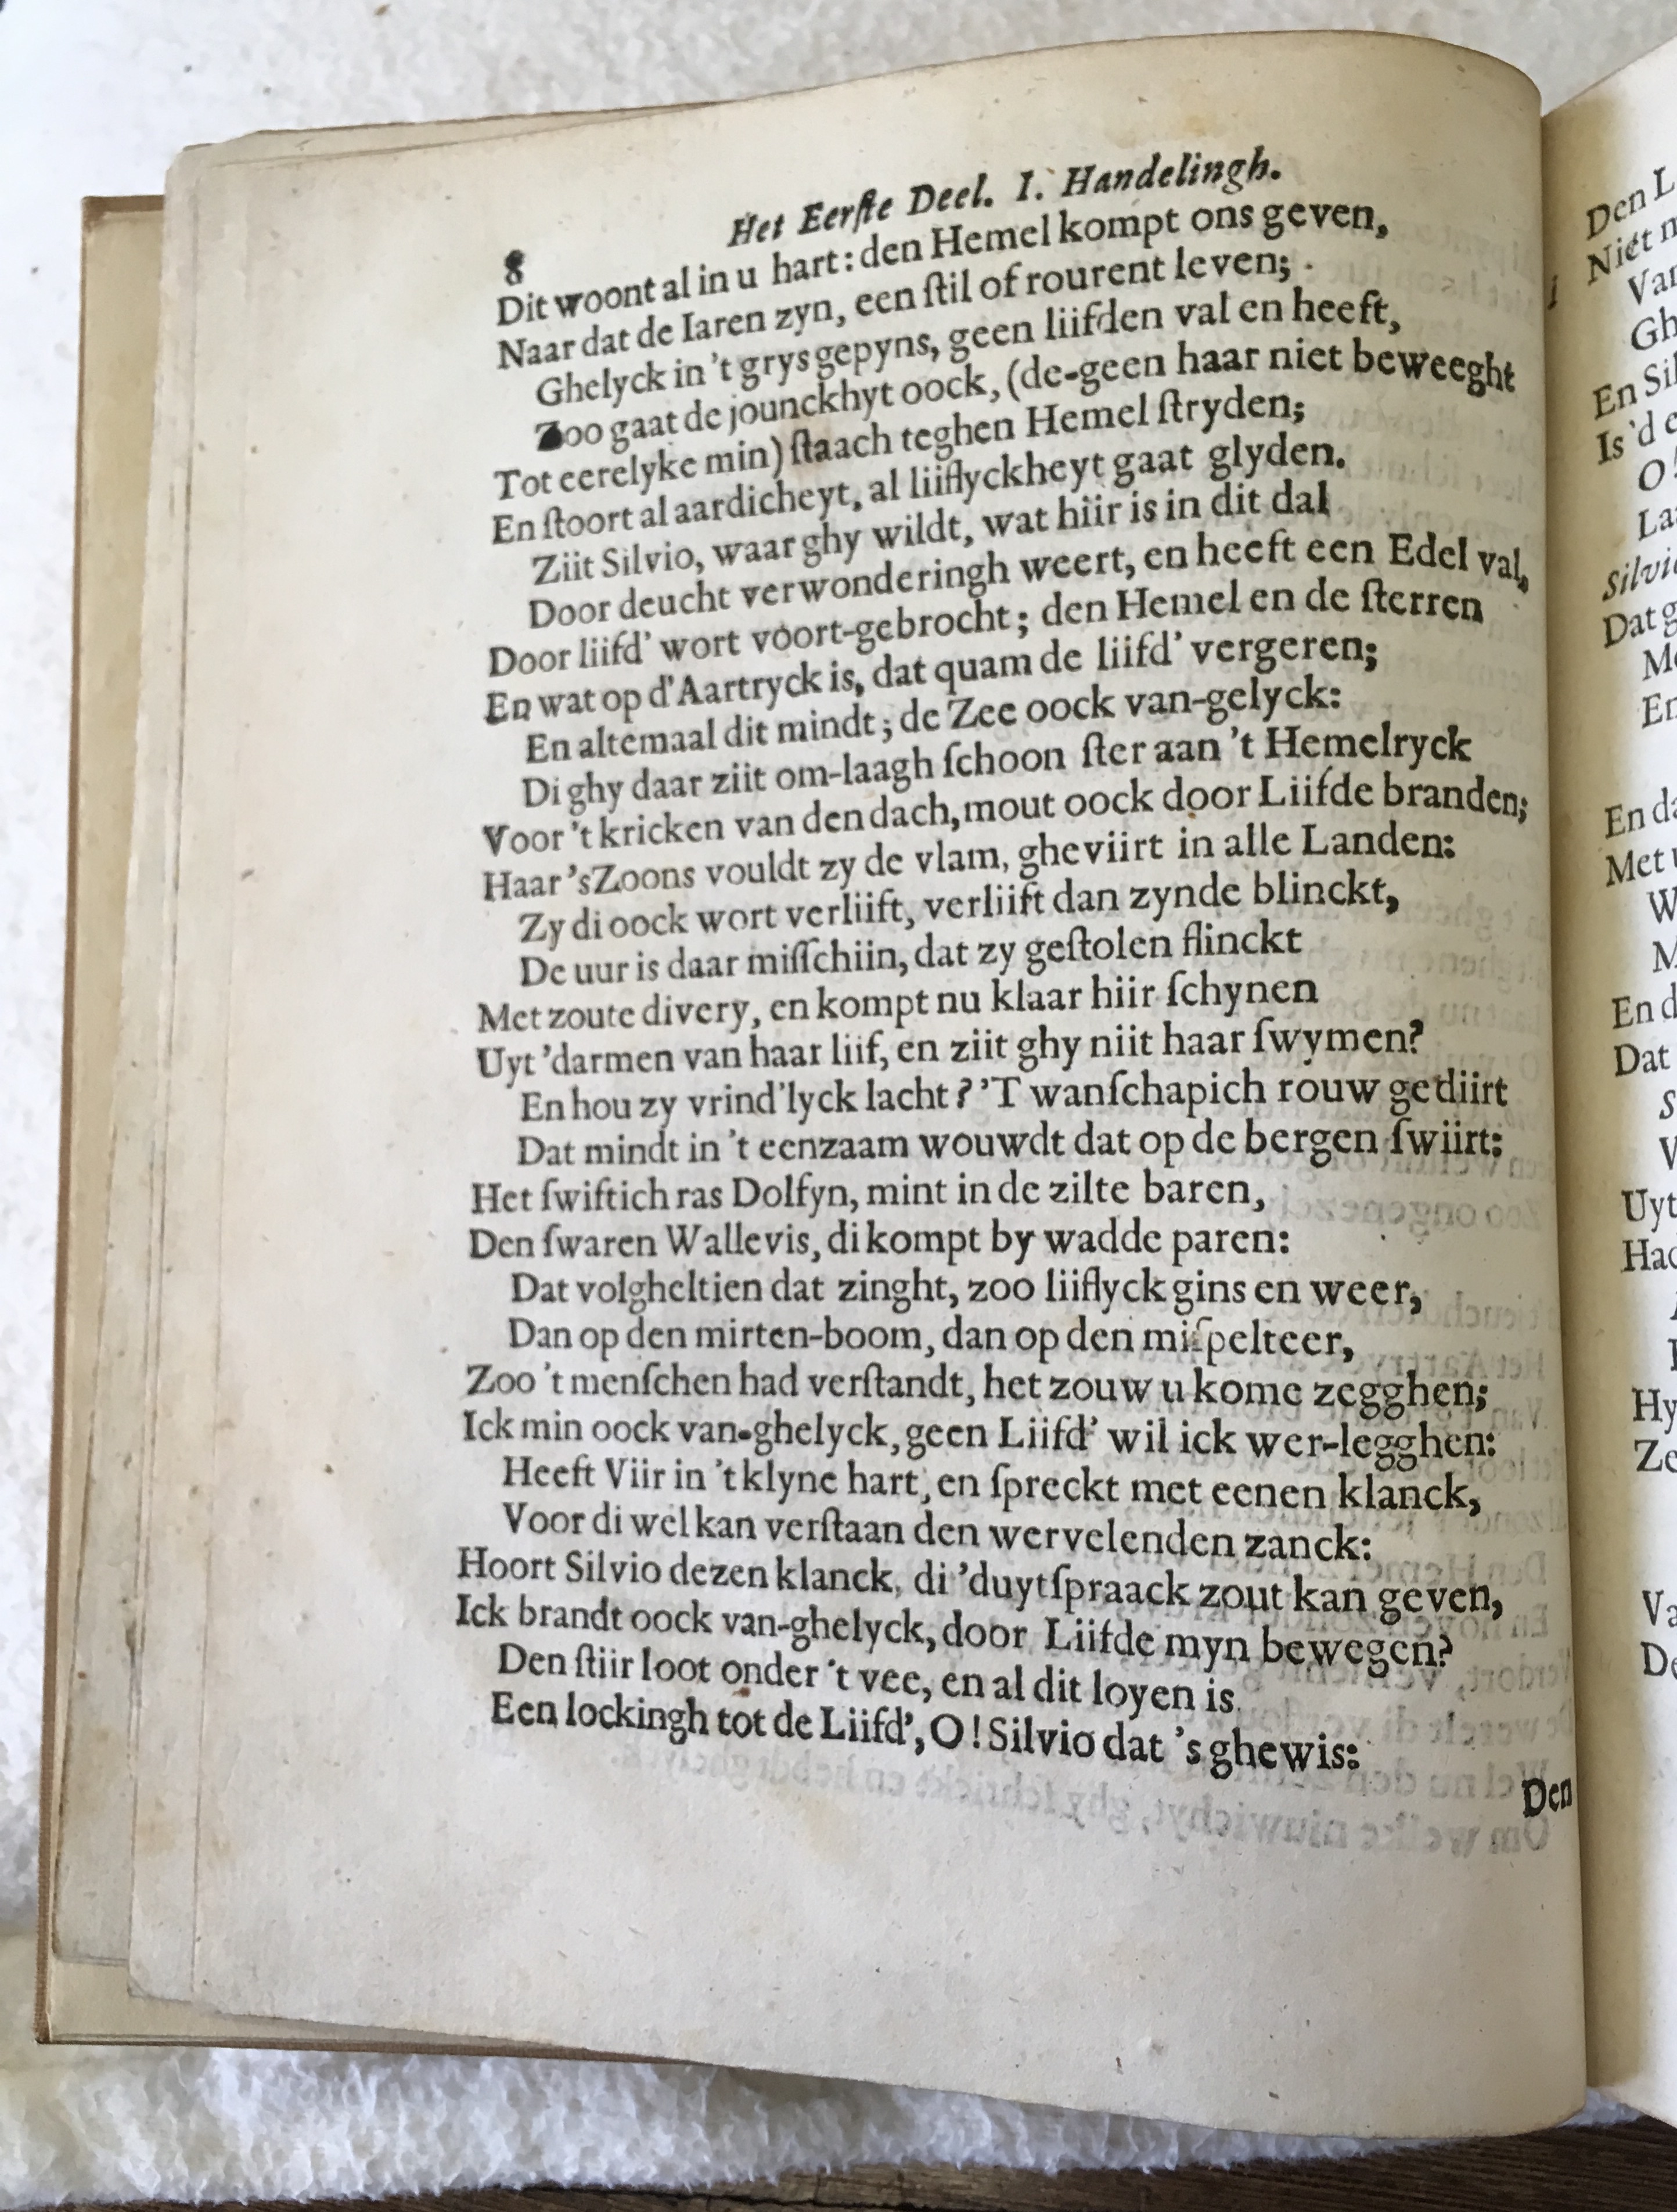 8 Het Eerſte Deel. I. Handelingh.
Dit woont al in u hart: den Hemel kompt ons geven,
Naar dat de Iaren zyn, een ſtil of rourent leven;
Ghelyck in 't grys gepyns, geen liifden val en heeft,
Zoo gaat de jounckhyt oock, (de-geen haar niet beweeght
Tot eerelyke min) ſtaach teghen Hemel ſtryden;
En ſtoort al aardicheyt, al liiflyckheyt gaat glyden.
Ziit Silvio, waar ghy wildt, wat hiir is in dit dal
Door deucht verwonderingh weert, en heeft een Edel val,
Door liifd' wort voort-gebrocht; den Hemel en de ſterren
En wat op d'Aartryck is, dat quam de liifd' vergeren;
En altemaal dit mindt; de Zee oock van-gelyck:
Di ghy daar ziit om-laagh ſchoon ſter aan 't Hemelryck
Voor 't kricken van den dach, mout oock door Liifde branden;
Haar 'sZoons vouldt zy de vlam, gheviirt in alle Landen:
Zy di oock wort verliift, verliift dan zynde blinckt,
De uur is daar miſſchiin, dat zy geſtolen flinckt
Met zoute divery, en kompt nu klaar hiir ſchynen
Uyt 'darmen van haar liif, en ziit ghy niit haar ſwymen?
En hou zy vrind'lyck lacht? 'T wanſchapich rouw gediirt
Dat mindt in 't eenzaam wouwdt dat op de bergen ſwiirt:
Het ſwiftich ras Dolfyn, mint in de zilte baren,
Den ſwaren Wallevis, di kompt by wadde paren:
Dat volgheltien dat zinght, zoo liiflyck gins en weer,
Dan op den mirten-boom, dan op den miſpelteer,
Zoo 't menſchen had verſtandt, het zouw u kome zegghen;
Ick min oock van-ghelyck, geen Liifd' wil ick wer-legghen:
Heeft Viir in 't klyne hart, en ſpreckt met eenen klanck,
Voor di wel kan verſtaan den wervelenden zanck:
Hoort Silvio dezen klanck, di 'duytſpraack zout kan geven,
Ick brandt oock van-ghelyck, door Liifde myn bewegen?
Den ſtiir loot onder 't vee, en al dit loyen is
Een lockingh tot de Liifd', O! Silvio dat 's ghewis:
Den
Den L
Niet
Van
Gh
En Sil
Is 'd
O!
La
Silvi
Dat g
M
En
En da
Met
W
M
En d
Dat
S
V
Uyt
Had
Hy
Ze
Va
De